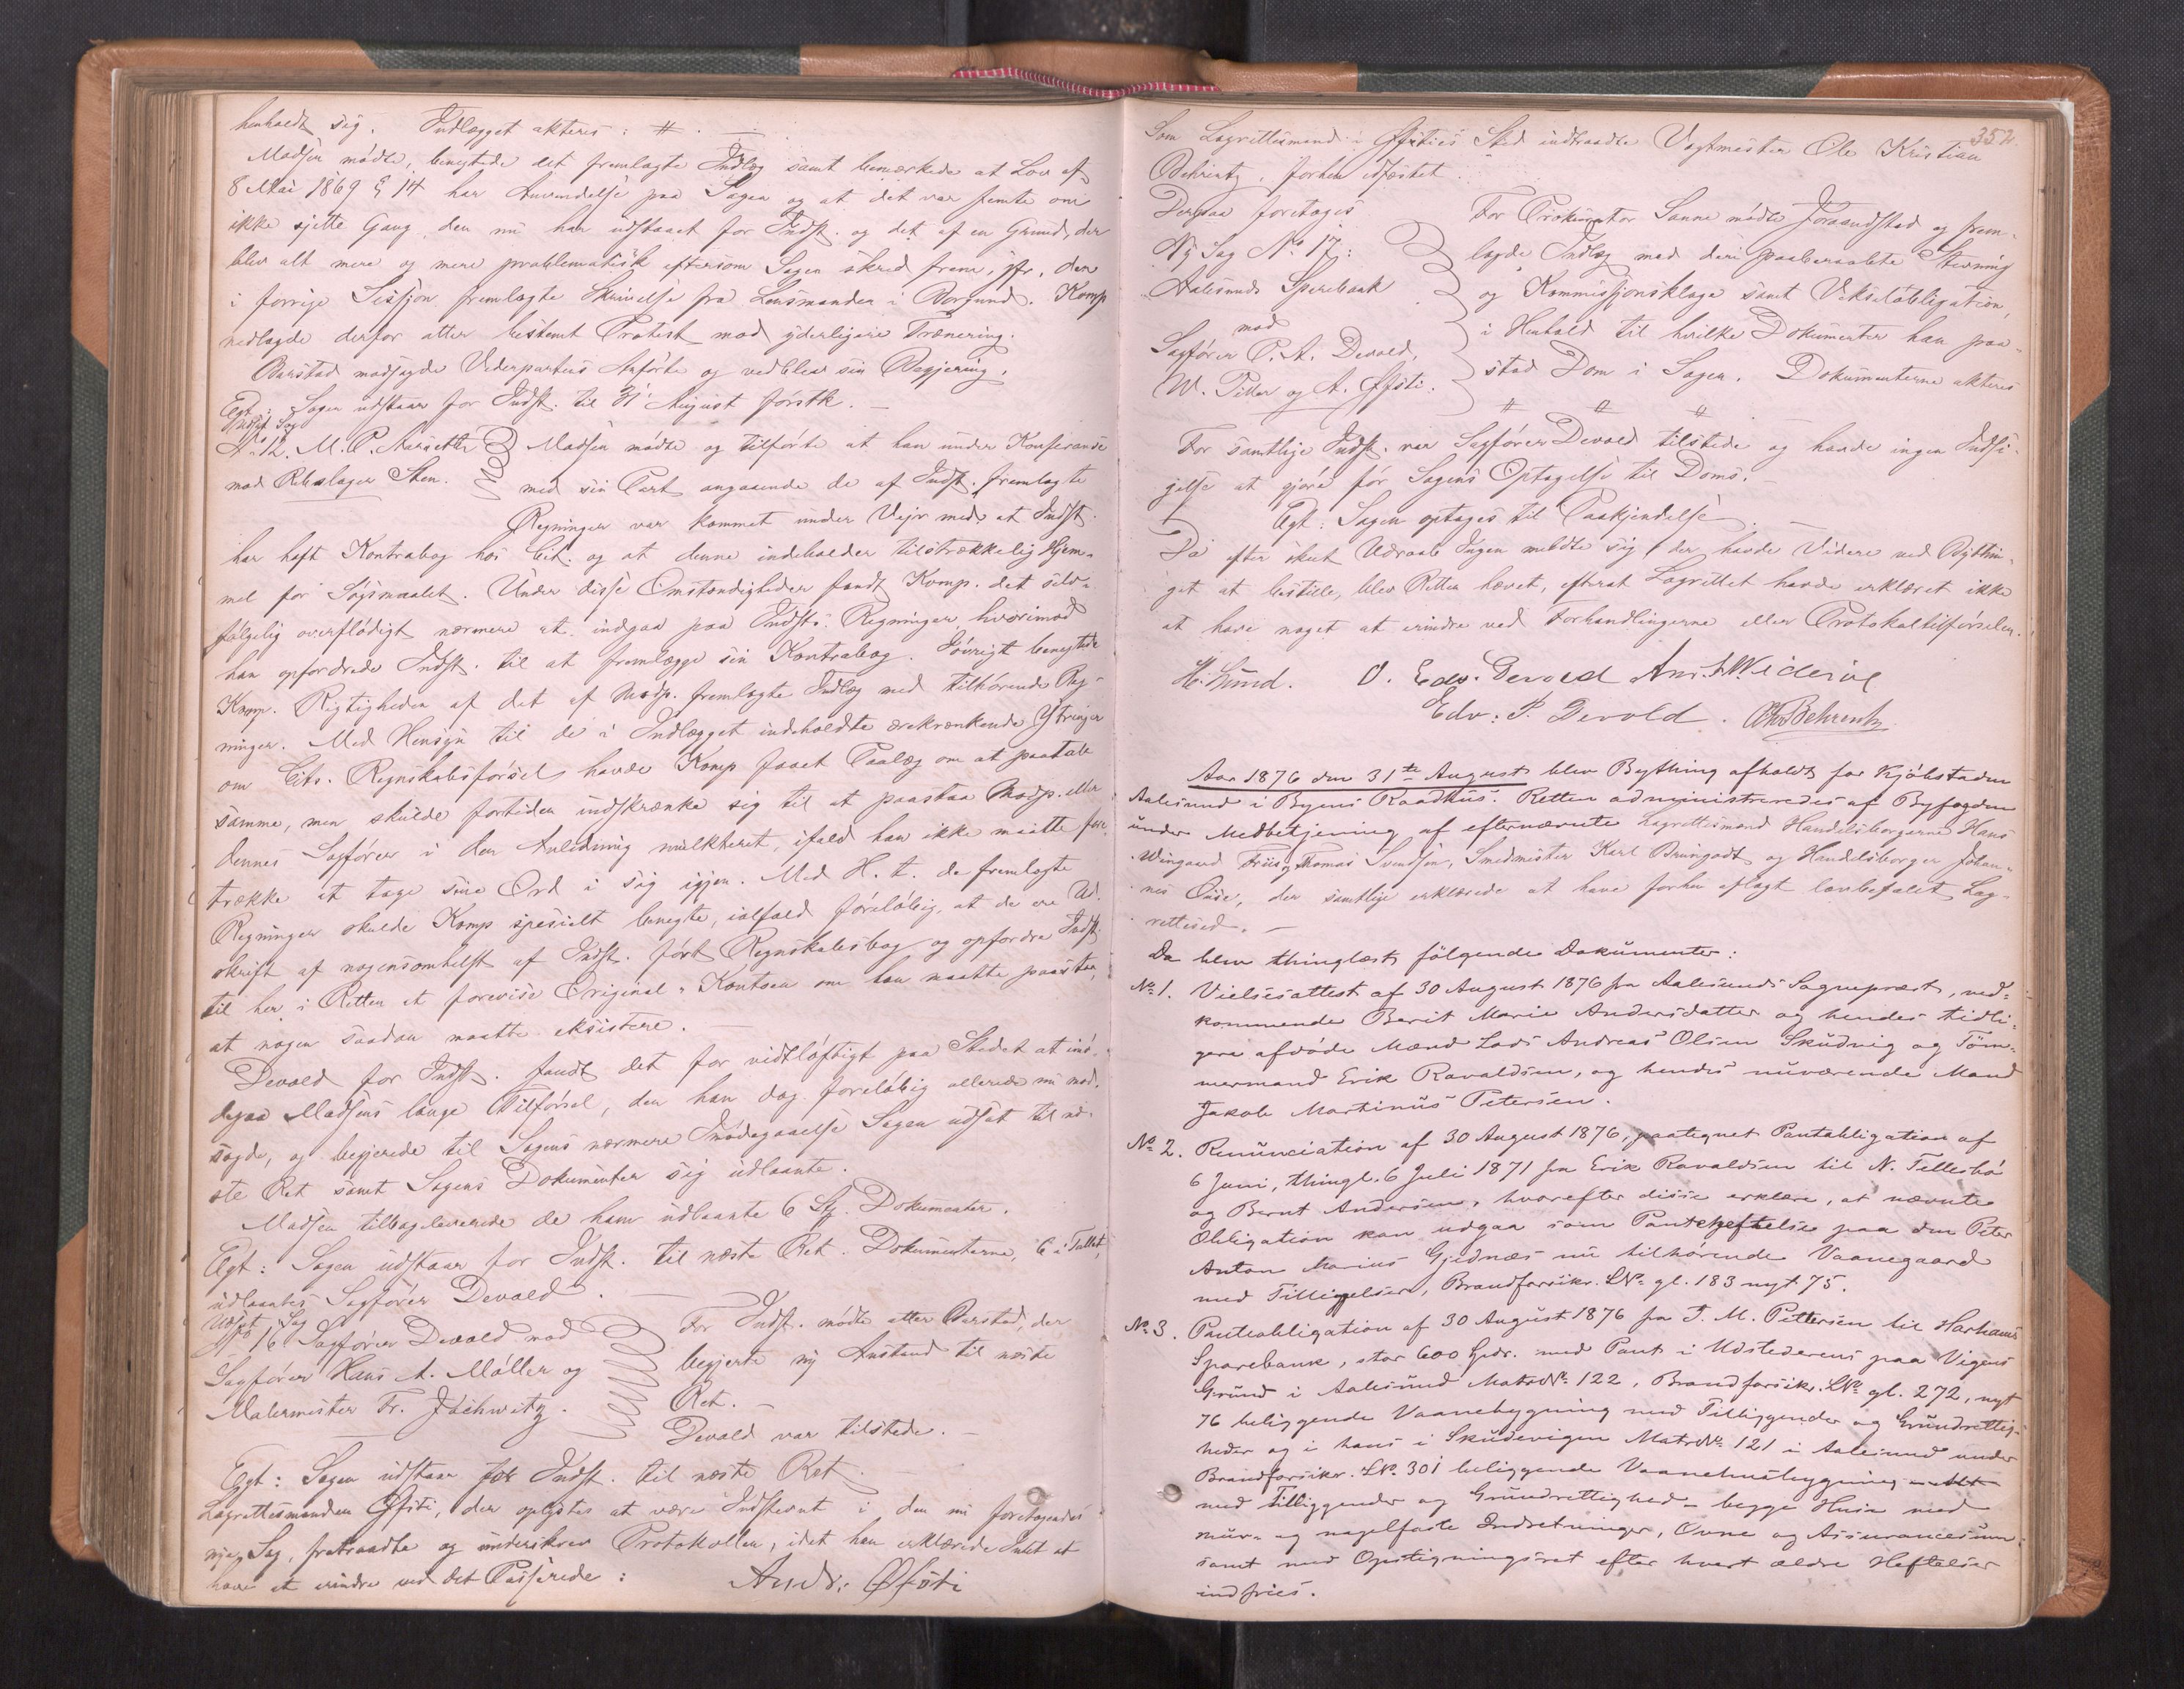 henholdt sig. Indlægget akteres: #. —
Madsen mødte, benegtede det fremlagte Indlæg samt bemærkede at Lov af
8 Mai 1869 § 14 har Anvendelse paa Sagen og at det var femte om
ikke sjette Gang den nu har udstaaet for Indst. og det af en Grund, der
blev alt mere og mere problematisk eftersom Sagen skred frem, jfr. den
i forrige Session fremlagte Skrivelse fra Lensmanden i Borgund. Komp
nedlagde derfor atter bestemt Protest mod yderligere Trænering.
Barstad modsagde Vederpartens Anførte og vedblev sin Begjering.
Egt: Sagen udstaar for Indst. til 31 August førstk. —
Udsat Sag
No 12. M. P. Aarsether
mod Rebslager Sten.
Madsen mødte og tilførte at han under Konferanse
med sin Part angaaende de af Indst. fremlagte
Regninger var kommet under Veir med at Indst.
har haft Kontrabog hos Cit. og at denne indeholder tilstrækkelig Hjem-
mel for Søgsmaalet. Under disse Omstændigheder fandt Komp. det selv-
følgelig overflødigt nærmere at indgaa paa Indsts. Regninger hvorimod
han opfordrede Indst. til at fremlægge sin Kontrabog. Iøvrigt benegtede
Komp. Rigtigheden af det af Modp. fremlagte Indlæg med tilhørende Reg-
ninger. Med Hensyn til de i Indlægget indeholdte ærekrænkende Ytringer
om Cits. Regnskabsførsel havde Komp faaet Paalæg om at paatale
samme, men skulde fortiden indskrænke sig til at paastaa Modp. eller
dennes Sagfører i den Anledning mulkteret, ifald han ikke maatte fore-
trække at tage sine Ord i sig igjen. Med H. t. de fremlagte
Regninger skulde Komp specielt benegte, ialfald foreløbig, at de ere Ud-
skrift af nogensomhelst af Indst. ført Regnskabsbog og opfordre Indst.
til her i Retten at forevise Original-Kontoen om han maatte paastaa,
at nogen saadan maatte eksistere. —
Devold for Indst. fandt det for vidtløftigt paa Stedet at imø-
degaa Madsens lange Tilførsel, den han dog foreløbig allerede nu mod-
sagde, og begjerede til Sagens nærmere Imødegaaelse Sagen udsat til næ-
ste Ret samt Sagens Dokumenter sig udlaante.
Madsen tilbageleverede de ham udlaante 6 St. Dokumenter.
Egt: Sagen udstaar for Indst. til næste Ret. Dokumenterne, 6 i Tallet,
udlaantes Sagfører Devold. —
Udsat Sag
No 16 Sagfører Devold mod
Sagfører Hans A. Møller og
Malermester Fr. Jachwitz.
For Indst. mødte atter Barstad, der
begjerte ny Anstand til næste
Ret. —
Devold var tilstede. —
Egt: Sagen udstaar for Indst. til næste Ret. —
Lagrettesmanden Øfsti, der oplystes at være Indstevnt i den nu foretagendes
nye Sag, fratraadte og underskrev Protokollen, idet han erklærede Intet at
have at erindre ved det Passerede:
Andr. Øfsti
352.
Som Lagrettesmand i Øfstis Sted indtraadte Vagtmester Ole Kristian
Behrentz, forhen edfæstet.
Derpaa foretages
Ny Sag No 17:
Aalesunds Sparebank
mod
Sagfører P. A. Devold,
W. Piller og A. Øfsti.
For Prokurator Sanne mødte Joraandstad og frem-
lagde Indlæg med deri paaberaabte Stevning
og Kommissionsklage samt Vekselobligation,
i Henhold til hvilke Dokumenter han paa-
stod Dom i Sagen. Dokumenterne akteres
# # #
For samtlige Indst. var Sagfører Devold tilstede og havde ingen Indsi-
gelse at gjøre for Sagens Optagelse til Doms. —
Egt: Sagen optages til Paakjendelse. —
Da efter skeet Udraab Ingen meldte sig der havde Videre ved Bythin-
get at bestille, blev Retten hævet, efterat Lagrettet havde erklæret ikke
at have noget at erindre ved Forhandlingerne eller Protokoltilførselen.
H. Lund. O. Edv. Devold And. Widerøe
Edv: P. Devold. OKBehrentz
Aar 1876 den 31te August blev Bything afholdt for Kjøbstaden
Aalesund i Byens Raadhus. Retten administreredes af Byfogden
under Medbetjening af efternævnte Lagrettesmænd Handelsborgerne Hans
Wingaard Friis, Thomas Svendsen, Smedmester Karl Brungodt og Handelsborger Johan-
nes Ouse, der samtlige erklærede at have forhen aflagt lovbefalet Lag-
rettesed. —
Da blev thinglæst følgende Dokumenter:
No 1. Vielsesattest af 30 August 1876 fra Aalesunds Sogneprest, ved-
kommende Berit Marie Andersdatter og hendes tidli-
gere afdøde Mænd Lars Andreas Olsen Skudvig og Töm-
mermand Erik Ravaldsen, og hendes nuværende Mand
Jakob Martinus Petersen.
No 2. Renunciation af 30 August 1876, paategnet Pantobligation af
6 Juni, thingl. 6 Juli 1871 fra Erik Ravaldsen til N. Tellesbö
og Bernt Andersen, hvorefter disse erklære, at nævnte
Obligation kan udgaa som Pantehæftelse paa den Peter
Anton Marius Gjednæs nu tilhørende Vaanegaard
med Tilliggelser, Brandforsikr. LNo gl. 183 nyt 75.
No 3. Panteobligation af 30 August 1876 fra T. M. Pettersen til Harhams
Sparebank, stor 600 Spdr. med Pant i Udstederens paa Vigens
Grund i Aalesund MatrNo 122, Brandforsikr. LNo gl. 272, nyt
76 beliggende Vaanebygning med Tilliggender og Grundrettig-
heder og i hans i Skudevigen MatrNo 121 i Aalesund under
Brandforsikr. LNo. 301 beliggende Vaanehusbygning
med Tilliggender og Grundrettighed - begge Huse med
mur- og nagelfaste Indretninger, Ovne og Assurancesum
samt med Opstigningsret efter hvert ældre Heftelser
indfries.